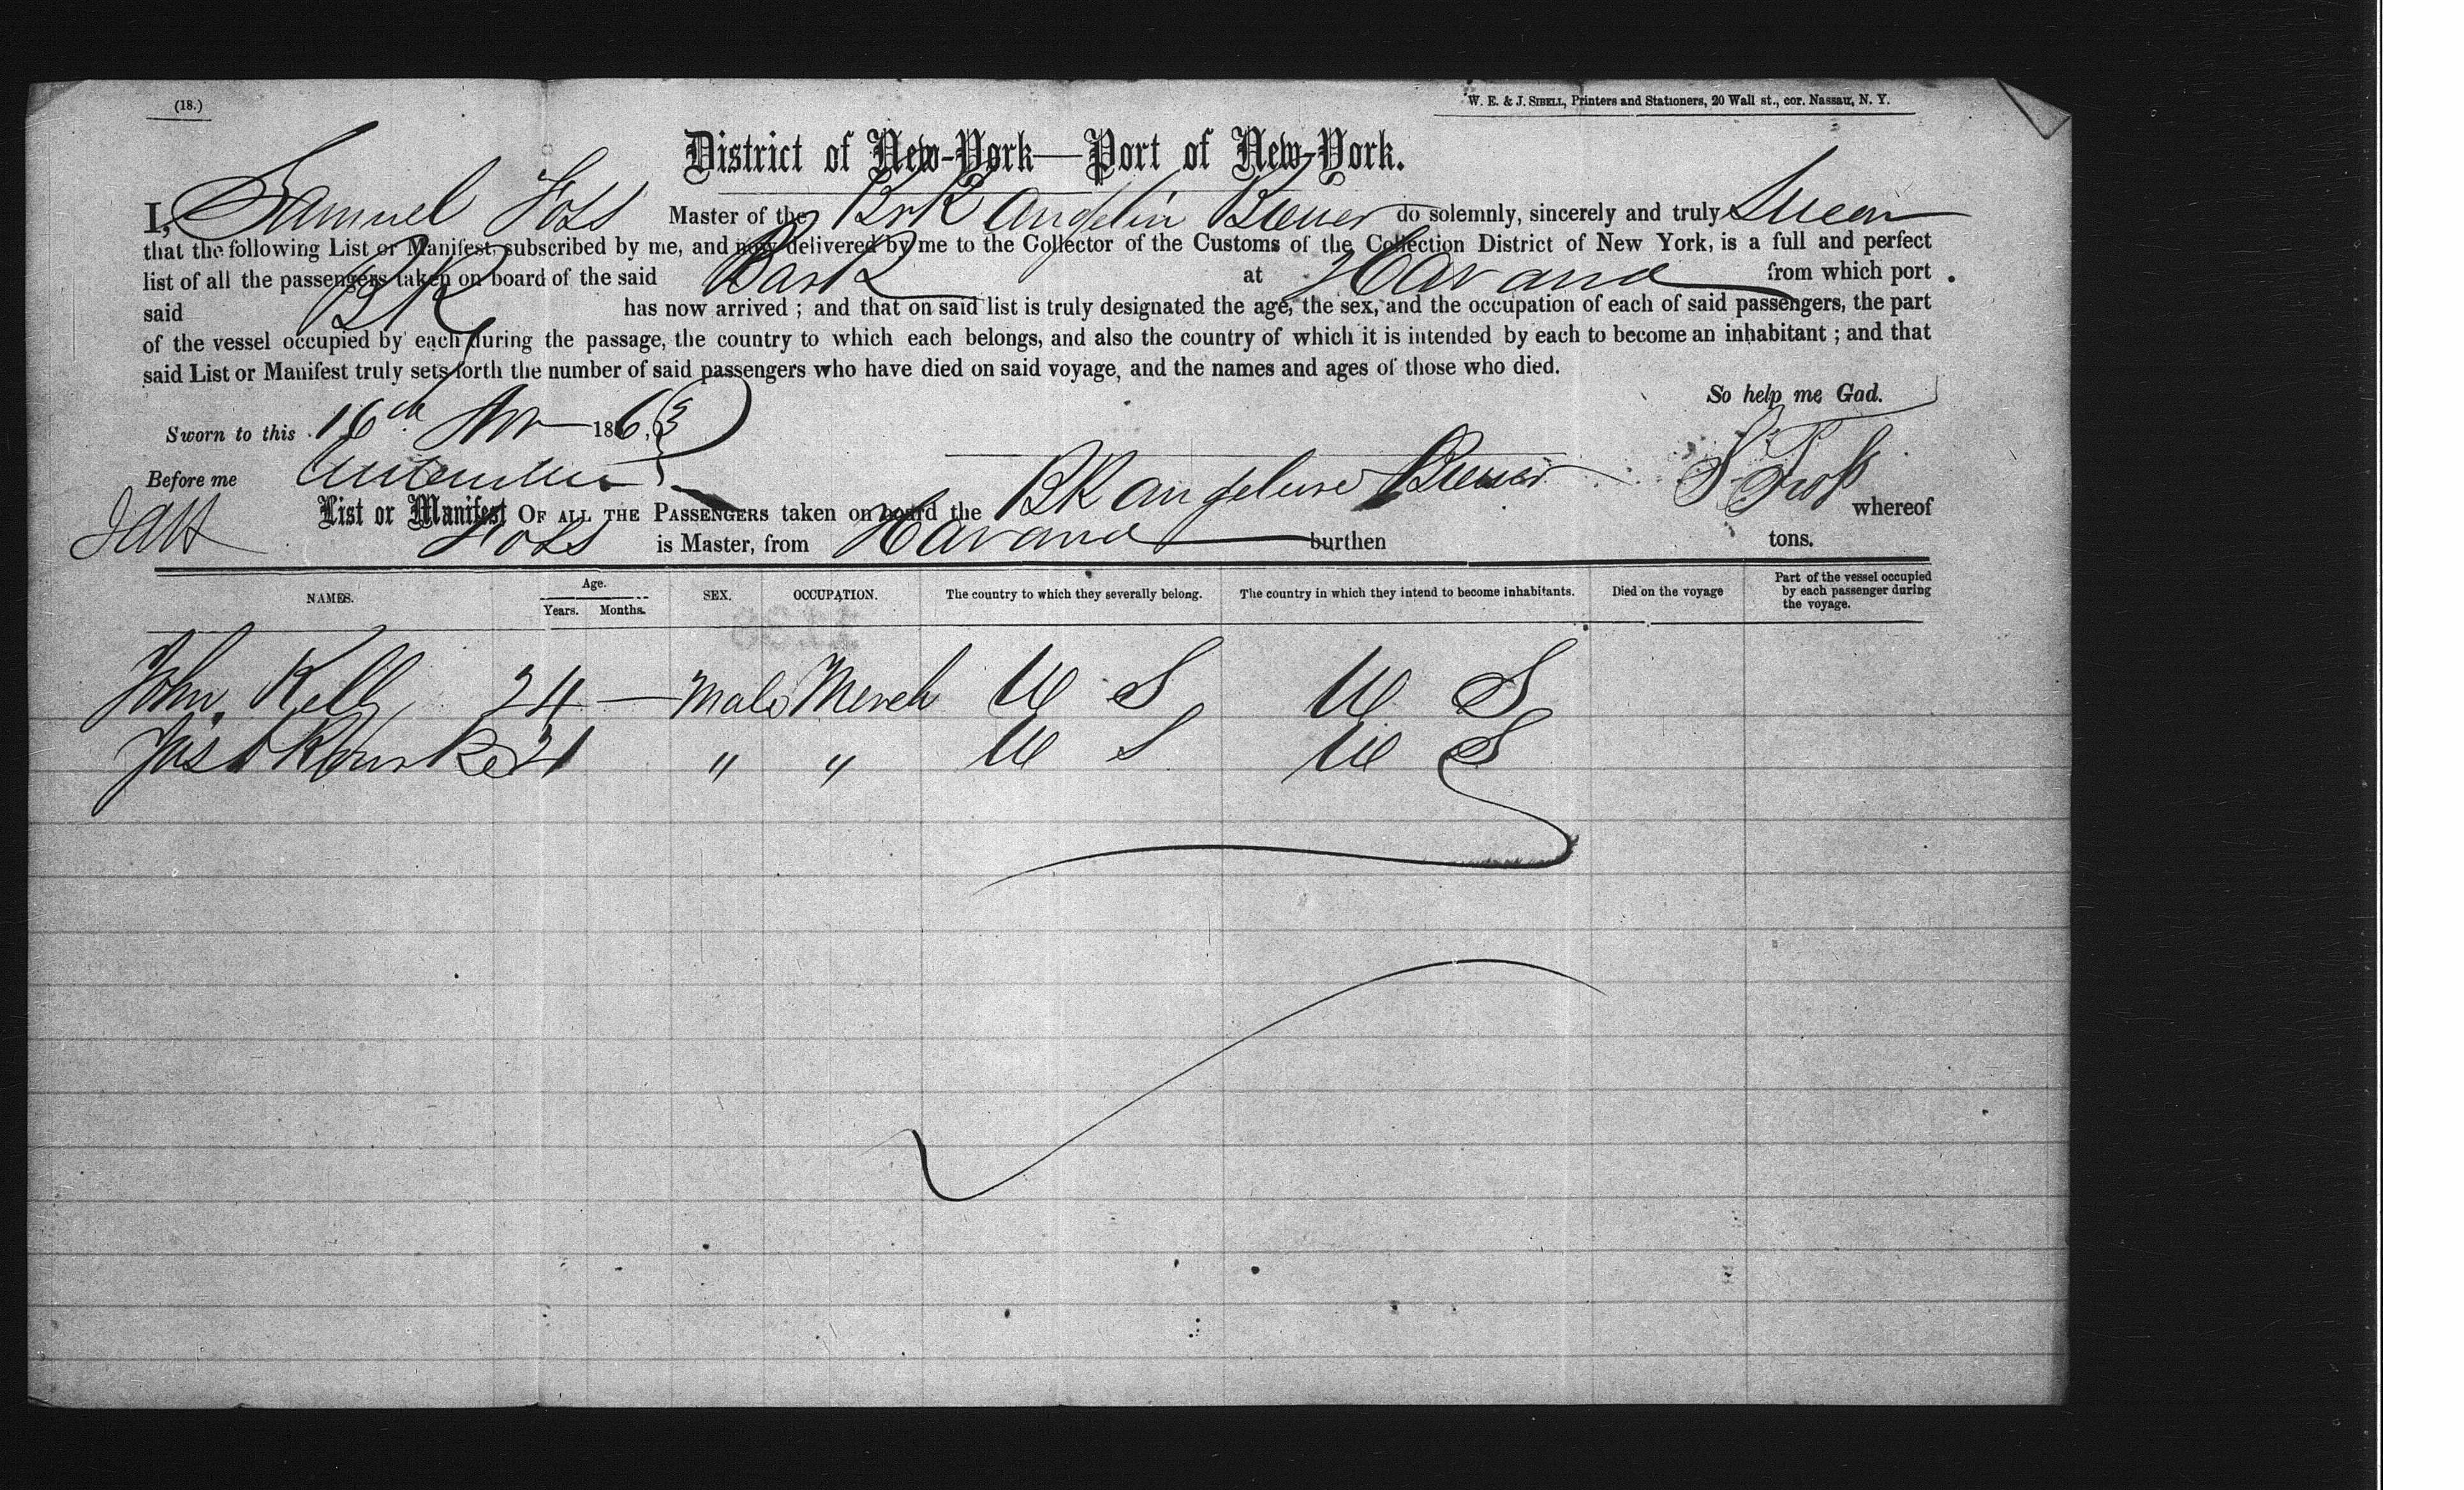 (18.)
W. E. & J. SIBELL, Printers and Stationers, 20 Wall st., cor. Nassau, N. Y.
District of New-York—Port of New-York.
I, Samuel Foss Master of the Brk Angelin Brewer do solemnly, sincerely and truly Swear
that the following List or Manifest, subscribed by me, and now delivered by me to the Collector of the Customs of the Collection District of New York, is a full and perfect
list of all the passengers taken on board of the said Bark at Havana from which port
said BK has now arrived ; and that on said list is truly designated the age, the sex, and the occupation of each of said passengers, the part
of the vessel occupied by each during the passage, the country to which each belongs, and also the country of which it is intended by each to become an inhabitant ; and that
said List or Manifest truly sets forth the number of said passengers who have died on said voyage, and the names and ages of those who died.
So help me God.
Sworn to this 16th Apr 1863
Before me
List or Manifest OF ALL THE PASSENGERS taken on board the BK Angeline Brewer whereof
Foss is Master, from Havana burthen tons.
NAMES. Age. Years. Months. SEX. OCCUPATION. The country to which they severally belong. The country in which they intend to become inhabitants. Died on the voyage Part of the vessel occupied by each passenger during the voyage.
John Kelly 24 — Male Merch U S U S
Jas Rourke 21 " " U S U S